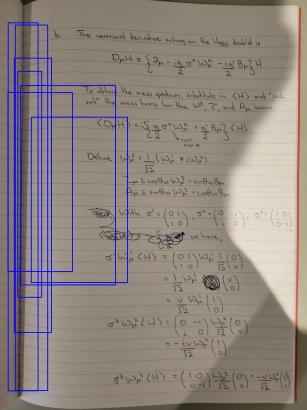 b. The covariant derivative acting on the Higgs doublet is
DμH = {∂μ - ig/2 σᵃWμᵃ - ig'/2 Bμ}H
To obtain the mass spectrum, substitute in <H> and "pick
out" the mass terms for the W±, Z, and A bosons
<DμH> = -i{g/2 σᵃWμᵃ + g'/2 Bμ}<H>
Define Wμ± = 1/√2 (Wμ¹ ∓ iWμ²)
Zμ = cosθw Wμ³ - sinθw Bμ
Aμ = sinθw Wμ³ + cosθw Bμ
With σ¹ = (0 1 / 1 0), σ² = (0 -i / i 0), σ³ = (1 0 / 0 -1)
we have,
σ¹Wμ¹<H> = (0 1 / 1 0) Wμ¹ 1/√2 (0 / v)
= 1/√2 Wμ¹ (v / 0)
= v/√2 Wμ¹ (1 / 0)
σ²Wμ²<H> = (0 -i / i 0) Wμ²/√2 (0 / v)
= -iv/√2 Wμ² (1 / 0)
σ³Wμ³<H> = (1 0 / 0 -1) Wμ³/√2 (0 / v) = -v Wμ³/√2 (0 / 1)